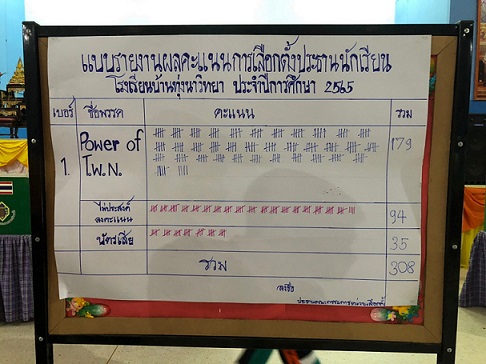 แบบรายงานผลคะแนนการเลือกตั้งประธานนักเรียน
โรงเรียนบ้านทุ่งนาวิทยา ประจำปีการศึกษา 2565
เบอร์ ชื่อพรรค คะแนน รวม
1. Power of โพ.N. 179
ไม่ประสงค์ลงคะแนน 94
บัตรเสีย 35
รวม 308
ลงชื่อ